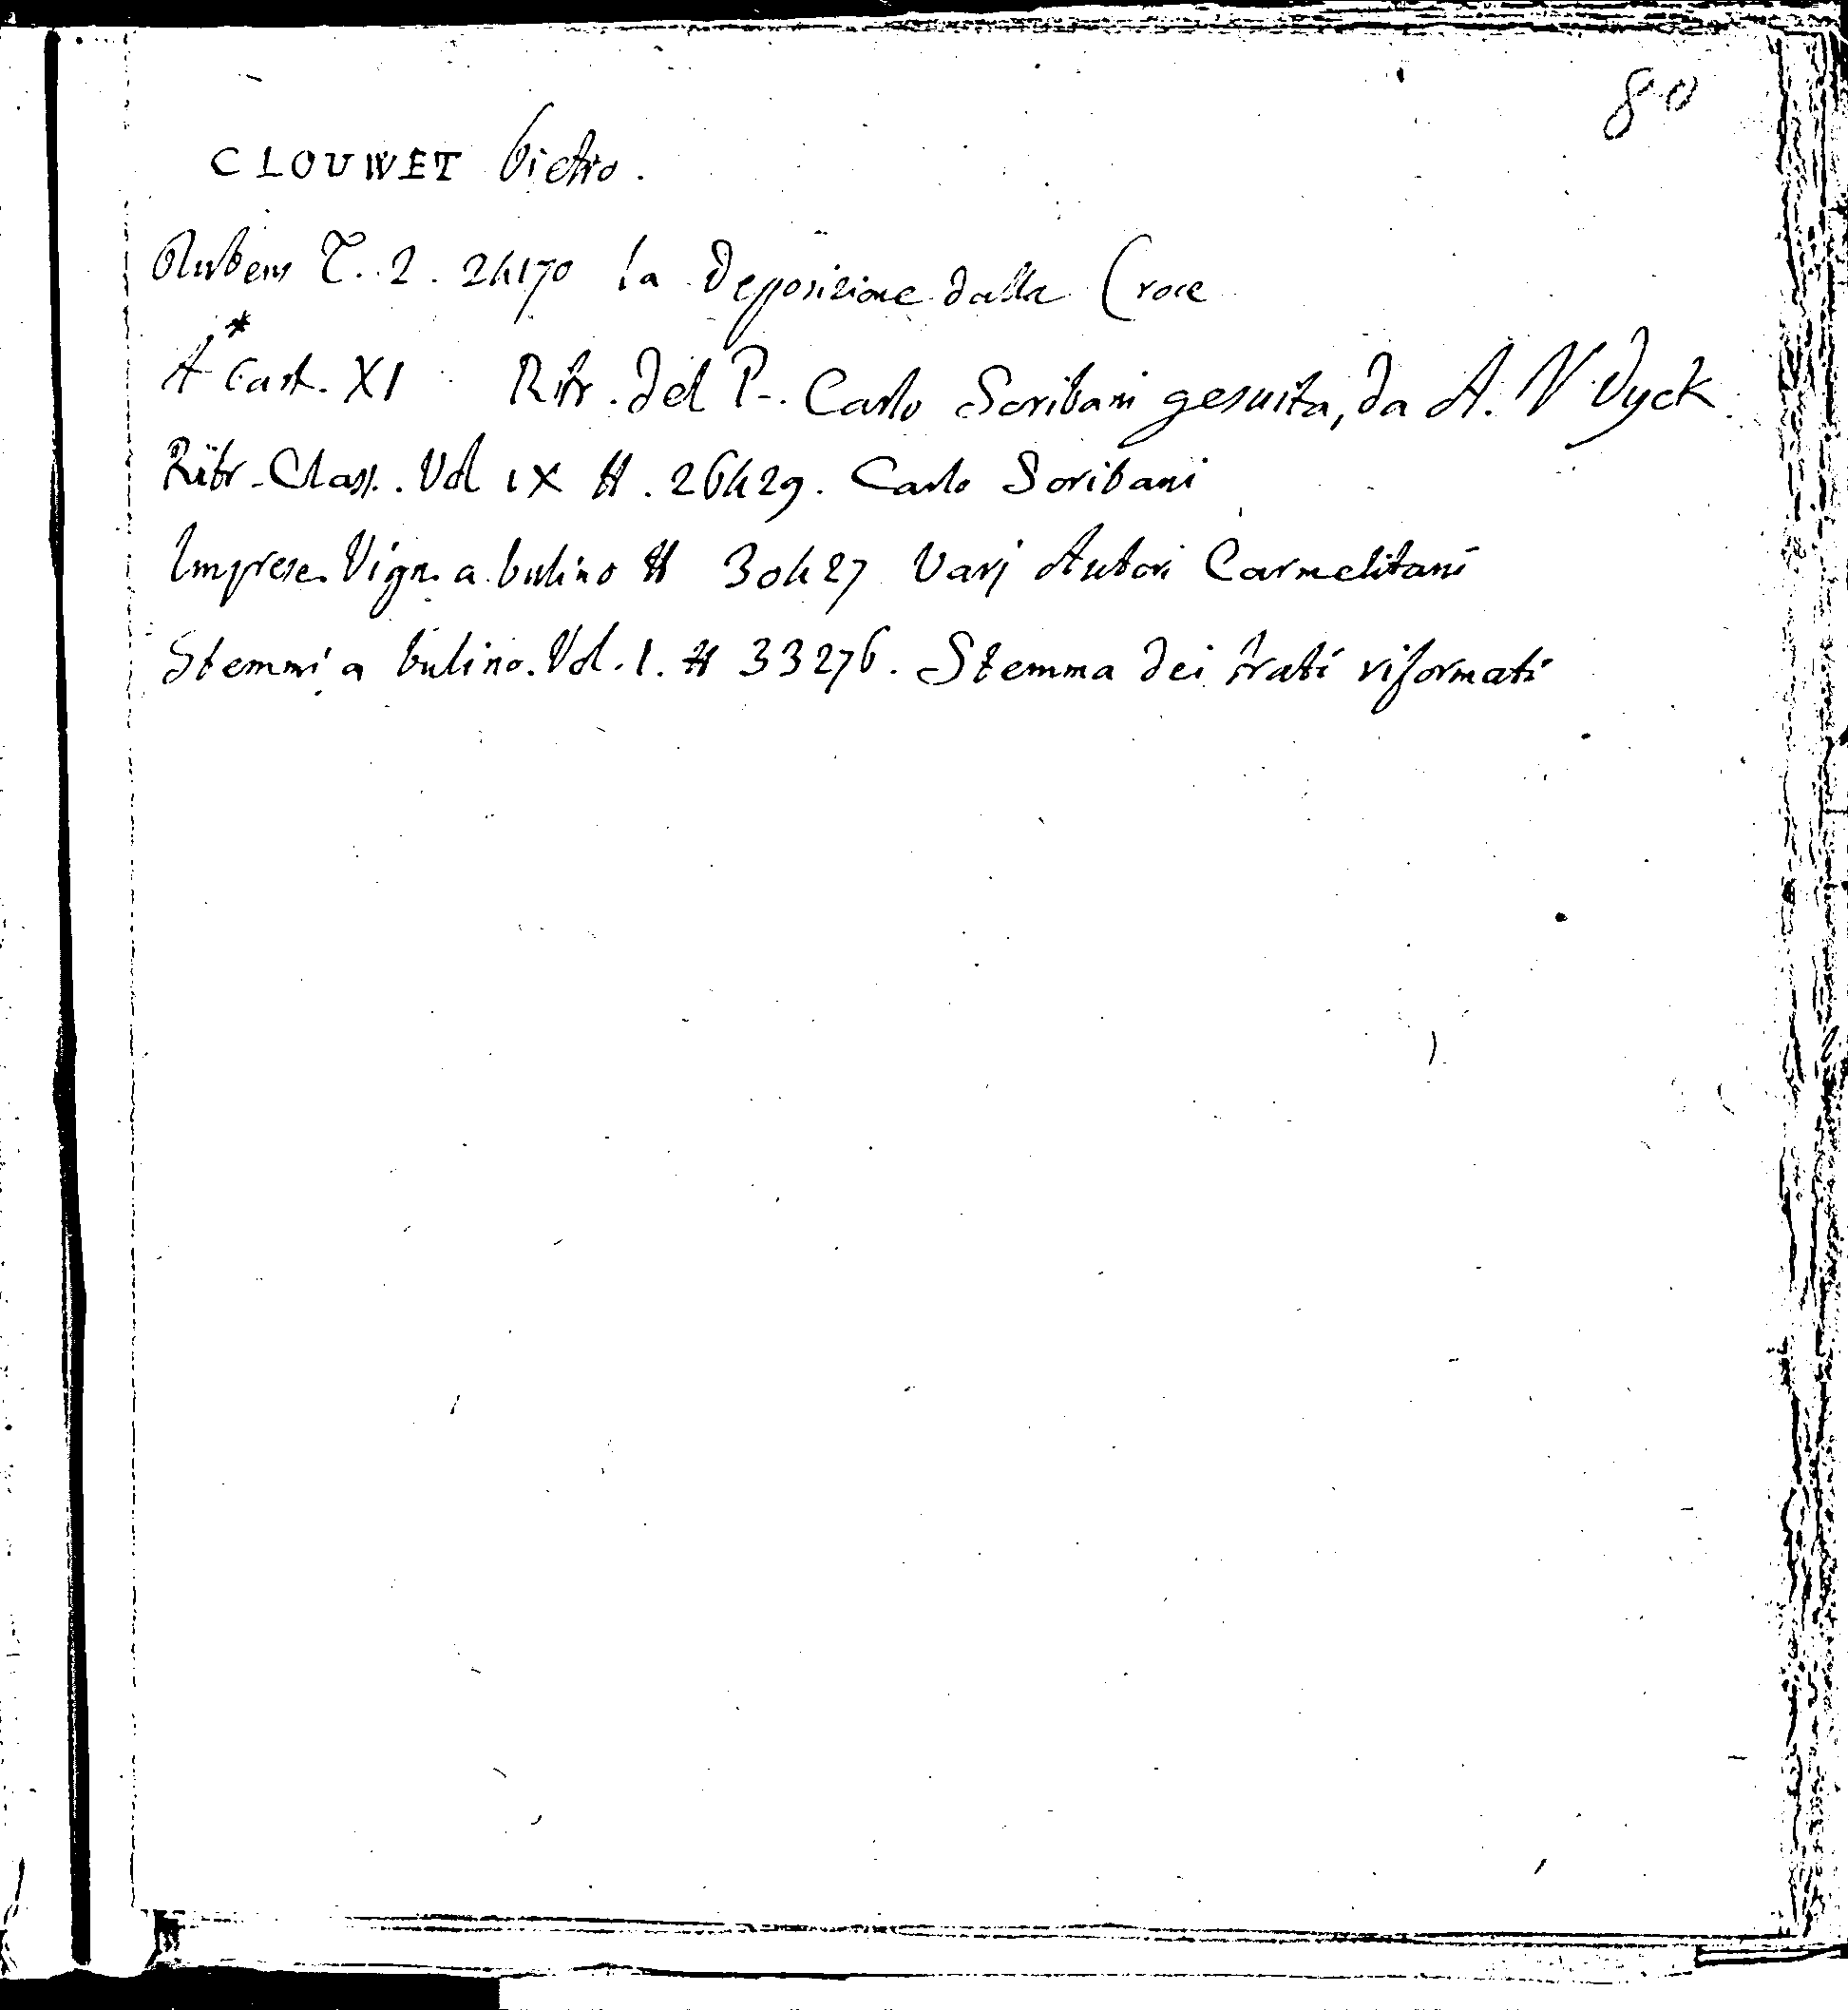 80
CLOUWET Pietro.
Rubens T. 2. 24170 la Deposizione dalla Croce
A* Cart. XI Ritr. del P. Carlo Scribani gesuita, da A. V Dyck
Ritr. Class. Vol IX H. 26429. Carlo Scribani
Imprese. Vign. a bulino H 30427 Varj Autori Carmelitani
Stemmi a bulino. Vol. 1. H 33276. Stemma dei frati riformati